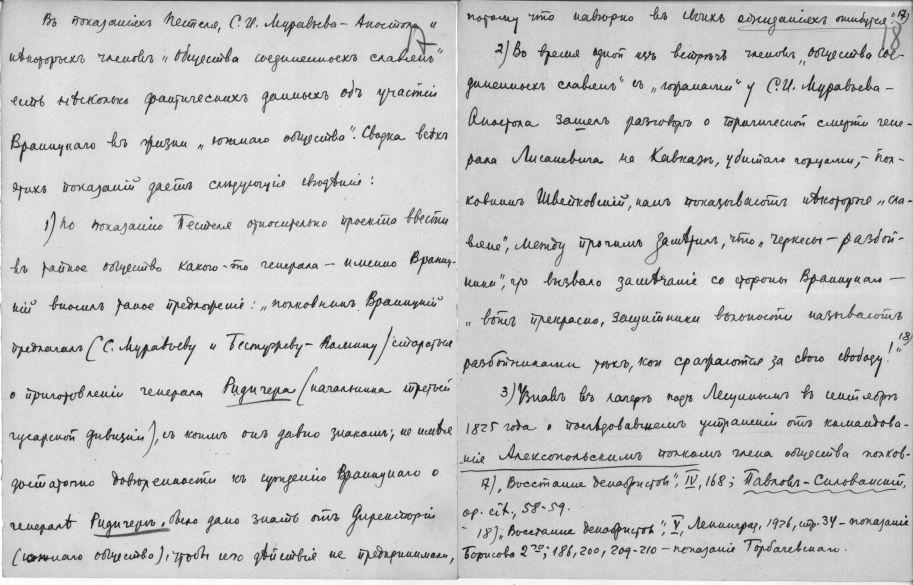 17
Въ показаніяхъ Пестеля, С.И. Муравьева-Апостола и
нѣкоторыхъ членовъ „Общества соединенныхъ славянъ"
есть нѣсколько фактическихъ данныхъ объ участіи
Враницкаго въ жизни „южнаго общества". Сводка всѣхъ
этихъ показаній даетъ слѣдующія свѣдѣнія:
1) По показанію Пестеля относительно проекта ввести
въ тайное общество какого-то генерала – именно Враниц-
кій вносилъ такое предложеніе: „полковникъ Враницкій
предлагалъ (С. Муравьеву и Бестужеву-Рюмину) стараться
о приготовленіи генерала Ридигера (начальника третьей
гусарской дивизіи), съ коимъ онъ давно знакомъ; не имѣя
достаточно довѣренности къ сужденію Враницкаго о
генералѣ Ридигерѣ, было дано знать отъ Директоріи
(южнаго общества), чтобы сего дѣйствія не предпринимали,
18
потому что навѣрно въ своихъ ожиданіяхъ ошибутся." 17)
2) Во время одной изъ встрѣчъ членовъ „общества сое-
диненныхъ славянъ" съ „южанами" у С.И. Муравьева-
Апостола зашелъ разговоръ о трагической смерти гене-
рала Лисаневича на Кавказѣ, убитаго горцами, – пол-
ковникъ Швейковскій, какъ показываютъ нѣкоторые „сла-
вяне", между прочимъ замѣтилъ, что „черкесы – разбой-
ники", что вызвало замѣчаніе со стороны Враницкаго –
„вотъ прекрасно, защитники вольности называютъ
разбойниками тѣхъ, кои сражаются за свою свободу!" 18)
3) Узнавъ въ лагерѣ подъ Лещиномъ въ сентябрѣ
1825 года о послѣдовавшемъ устраненіи отъ командова-
нія Алексопольскимъ полкомъ члена общества полков-
17) „Восстание декабристов", IV, 168; Павловъ-Сильванскій,
op. cit., 58-59.
18) „Восстание декабристов", V, Ленинград, 1926, стр. 34 – показаніе
Борисова 2го; 186, 200, 209-210 – показаніе Горбачевскаго.